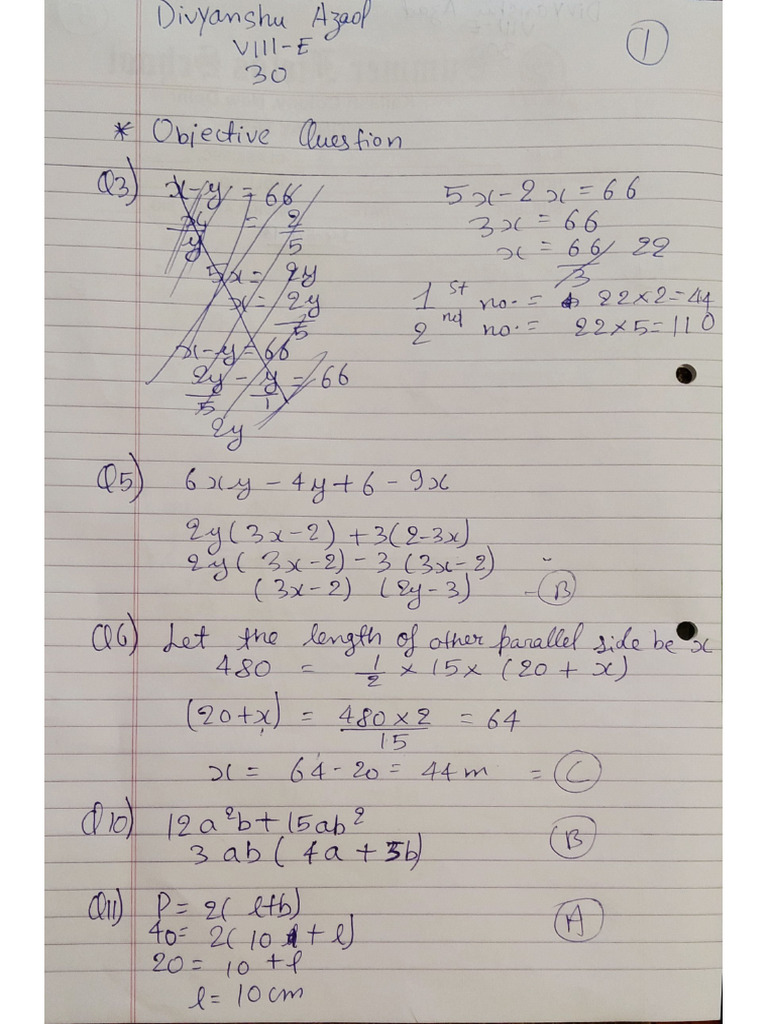 Divyanshu Azad
VIII-E
30
1
* Objective Question
Q3)
x-y = 66
x/y = 2/5
5x = 2y
x = 2y/5
x-y = 66
2y/5 - y/1 = 66
2y
5x-2x = 66
3x = 66
x = 66/3 22
1st no. = 22×2=44
2nd no. = 22×5=110
Q5) 6xy-4y+6-9x
2y(3x-2)+3(2-3x)
2y(3x-2)-3(3x-2)
(3x-2) (2y-3) - B
Q6) Let the length of other parallel side be x
480 = 1/2 × 15 × (20 + x)
(20+x) = 480×2/15 = 64
x = 64-20 = 44m = C
Q10) 12a²b+15ab²
3ab(4a+5b) B
Q11) P = 2(l+b) A
40 = 2(10 + l)
20 = 10 + l
l = 10cm